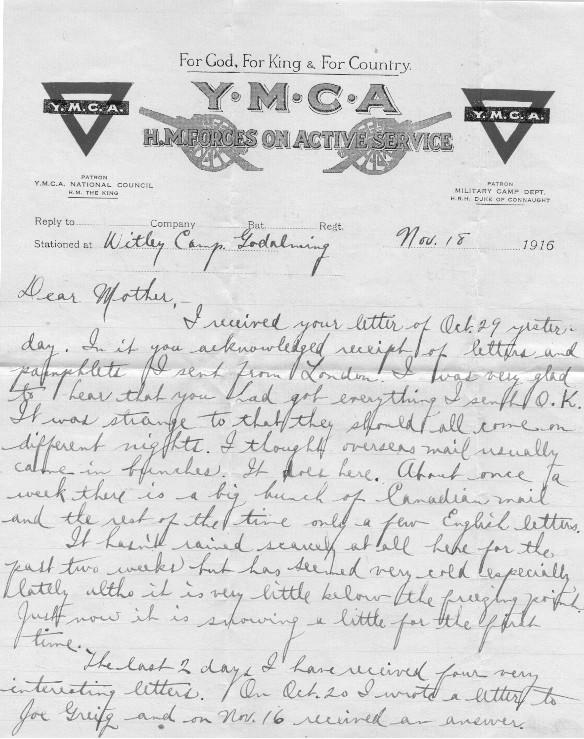 For God, For King & For Country.
Y·M·C·A
H.M. FORCES ON ACTIVE SERVICE
Y.M.C.A.
Y.M.C.A.
PATRON
Y.M.C.A. NATIONAL COUNCIL
H.M. THE KING
PATRON
MILITARY CAMP DEPT.
H.R.H. DUKE OF CONNAUGHT
Reply to Company Bat. Regt.
Stationed at Witley Camp. Godalming Nov. 18 1916
Dear Mother,-
I received your letter of Oct. 29 yester-
day. In it you acknowledged receipt of letters and
pamphlets I sent from London. I was very glad
to hear that you had got everything I sent O.K.
It was strange to that they should all come on
different nights. I thought overseas mail usually
came in bunches. It does here. About once a
week there is a big bunch of Canadian mail
and the rest of the time only a few English letters.
It hasn't rained scarcely at all here for the
past two weeks but has seemed very cold especially
lately altho it is very little below the freezing point.
Just now it is snowing a little for the first
time.
The last 2 days I have received four very
interesting letters. On Oct. 20 I wrote a letter to
Joe Greig and on Nov. 16 received an answer.